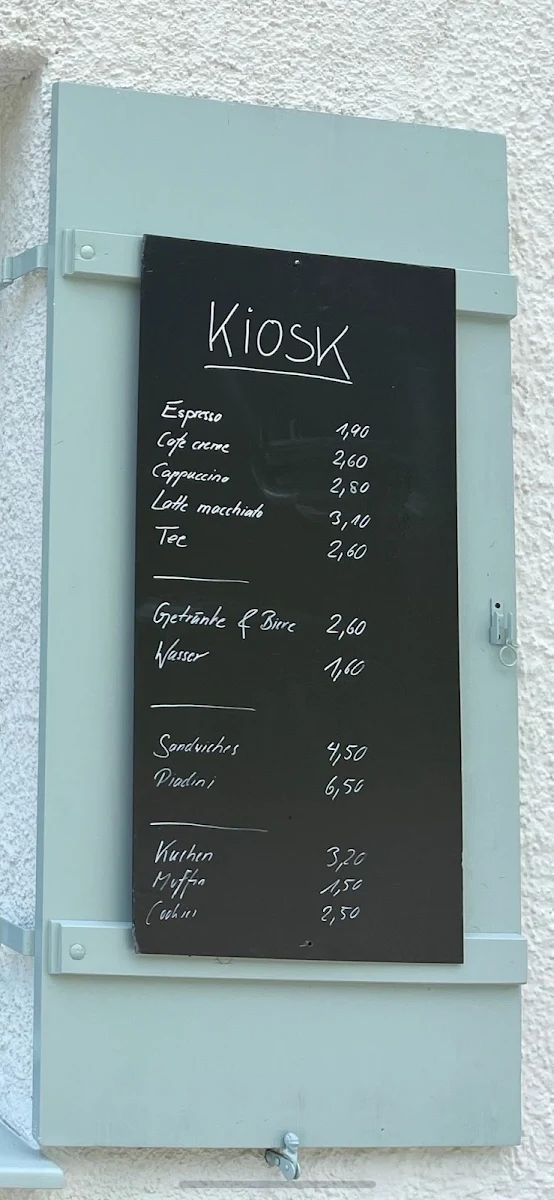 KIOSK
Espresso 1,90
Café creme 2,60
Cappuccino 2,80
Latte macchiato 3,10
Tee 2,60
Getränke & Biere 2,60
Wasser 1,60
Sandwiches 4,50
Piadini 6,50
Kuchen 3,20
Muffin 1,50
Cookies 2,50